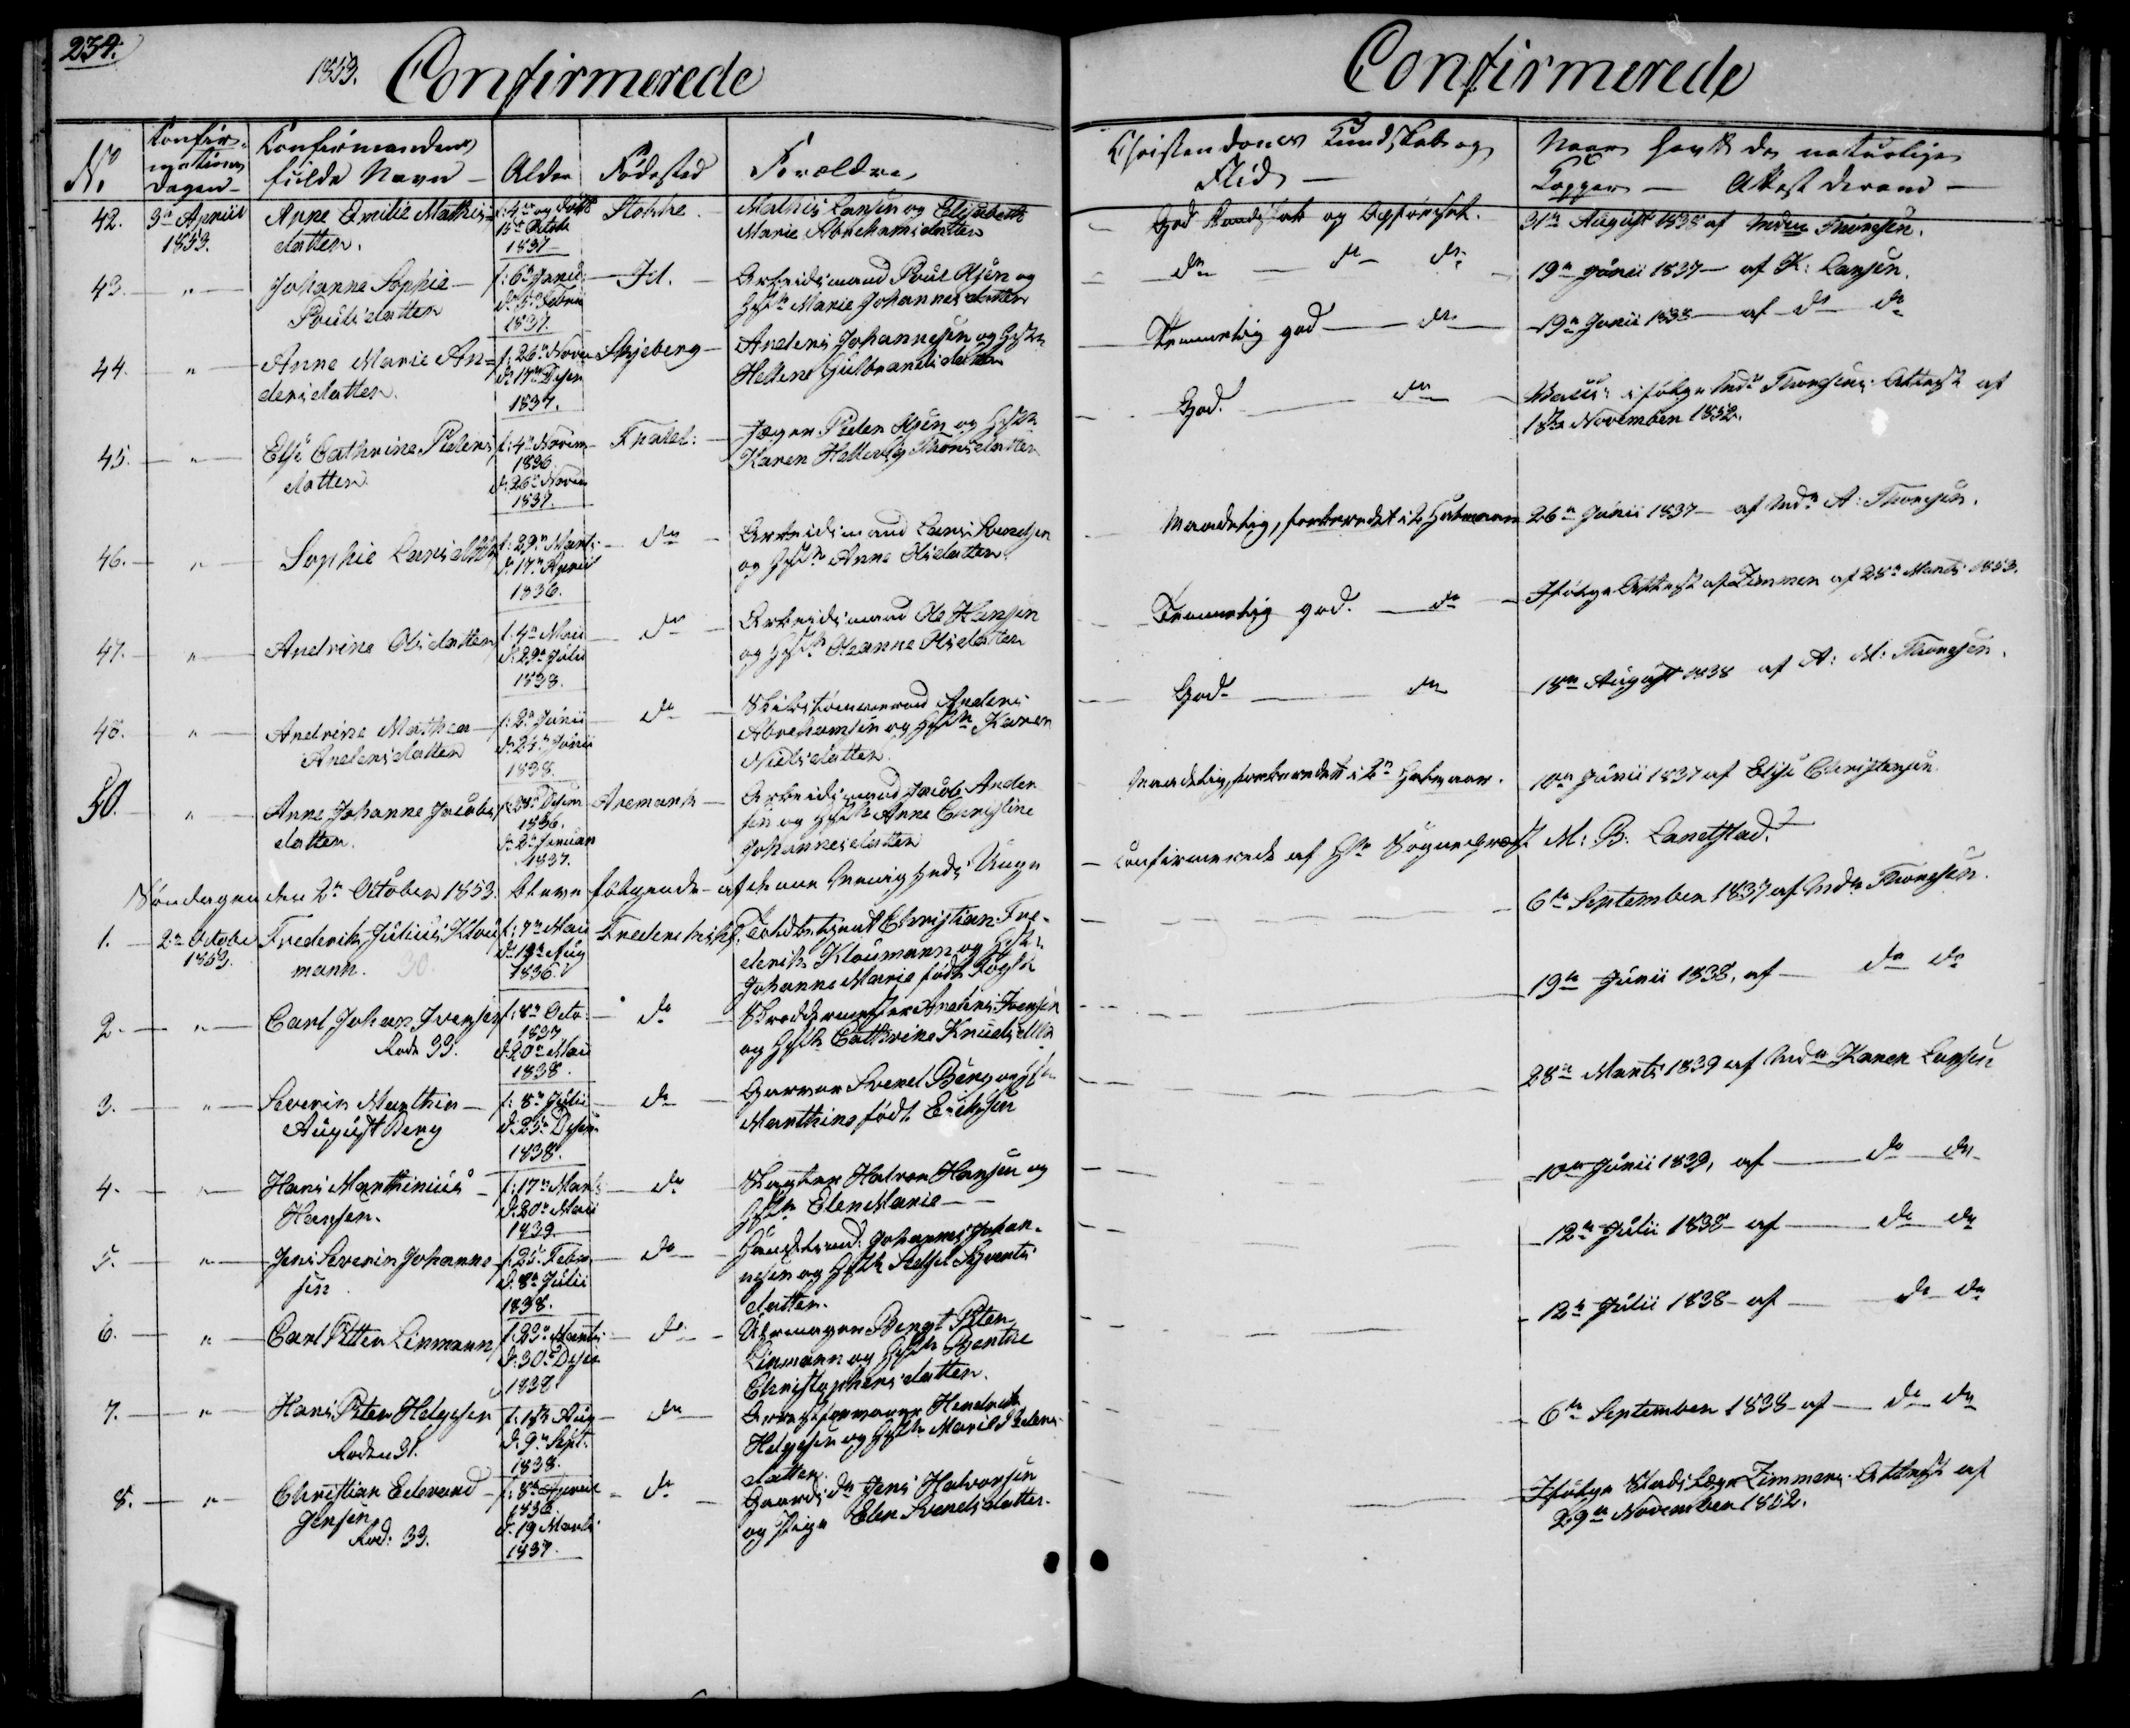 234.
1853. Confirmerede
Confirmerede
No
Konfir-
mations
Dagen
Konfirmandens
fulde Navn
Alder
Fødested
Forældre
Christendoms Kundskab og
Flid
Naar havt de naturlige
Kopper — Attest derom
42. 3die April
1853.
Anne Emilie Mathis-
datter.
1837
Stokke
Mathis Larsen og Elisabeth
Marie Abrahamsdatter
God Kundskab og Opførsel.
31te August 1838 af Madm Thoresen.
43. "
Johanne Sophie
Poulsdatter
1837.
Id.
Arbeidsmand Poul Olsen og
Hst. Marie Johannesdatter
do do do
19de Junii 1837 af K: Larsen.
44. "
Anne Marie An-
dersdatter.
f: 26de Novem
d: 17de Decem
1837.
Skjeberg
Anders Johannesen og Hst.
Hellene Gulbrandsdatter
Temmelig god do
19de Junii 1838 af do do
45. "
Else Cathrine Peders
datter
f: 4de Novem
1836
d: 26de Novem
1837.
Fralds:
Peder Olsen og Hst.
Karen Hellevig Thorsdatter
God. do
ifølge Mdm Thoresens Attest af
18de November 1852.
46. "
Sophie Larsdatter
f: 29de Marts
d: 17de April
1836.
do
Arbeidsmand Lars Svendsen
og Hst. Anne Olsdatter
Maadelig, forberedet i 2 Halvaar
26de Junii 1837 af Mdm A: Thoresen.
47. "
Andrine Olsdatter
f: 4de Mai
d: 29de Julii
1838.
do
Arbeidsmand Ole Hansen
og Hst. Oleanne Olsdatter
Temmelig god. do
Ifølge Attest af Zimmer af 28de Marts 1853.
48. "
Andrine Mathea
Andersdatter
f: 2den Junii
d: 24de Junii
1838.
do
Skibstømmermand Anders
Abrahamsen og Hst. Karen
Nielsdatter.
God do
18de August 1838 af A: M: Thoresen.
50. "
Anne Johanne Jacobs
datter.
f: 28de Decem
1836.
d: 2den Januar
1837.
Aremark
Arbeidsmand Jacob Ander
sen og Hst. Anne Christine
Johannesdatter
Maadelig, forberedet i 2de Halvaar.
10de Junii 1837 af Elise Christensen.
Søndagen den 2den October 1853. bleve følgende af denne Menigheds Unge
confirmerede af Hr. Sogneprest M: B: Landstad.
1. 2den Octobr
1853.
Frederik Julius Klou
mann. 30.
f: 7de Mai
d: 19de Aug
1836.
Frederikshald
Christian Fre-
derik Kloumann og Hst.
Johanne Marie født Vogt
6te September 1837 af Mdm Thoresen.
2. "
Carl Johan Iversen
Rode 33.
f: 8de Octo
1837
d: 20de Mai
1838.
do
Skreddermester Anders Iversen
og Hst. Cathrine Knudsdttr
19de Junii 1838, af do do
3. "
Severin Marthin
August Berg
f: 8de Julii
d: 25de Decem
1838.
do
Garver Svend Berg og Hst.
Marthine født Erichsen
28de Marts 1839 af Mdm Karen Larsen
4. "
Hans Marthinius
Hansen.
f: 17de Marts
d: 20de Mai
1839
do
Slagter Halvor Hansen og
Hst. Elen Marie
10de Junii 1839, af do do
5. "
Jens Severin Johanne
sen
f: 25 Febr.
d: 8de Julii
1838.
do
Handelsmd. Johannes Johan-
nesen og Hst.
datter.
12te Julii 1838 af do do
6. "
Carl Peter Linmann
f: 23de Marts
d: 30te Decem
1838
do
Uhrmager Bengt Peter
Linmann og Hst. Benthe
Christophersdatter.
12te Julii 1838 af do do
7. "
Hans Peter Helgesen
Roden 31.
f: 1ste Aug
d: 9de Sept.
1838.
do
Arrestforvarer Hendrik
Helgesen og Hst. Maria Peders
datter
6te September 1838 af do do
8. "
Christian Edvard
Jensen
Rod: 33.
f: 8de April
1836
d: 19 Marts
1837.
do
Jens Halvorsen
og Pige Elen Svendsdatter.
Ifølge Stads Læge Zimmers Attest af
29de November 1852.